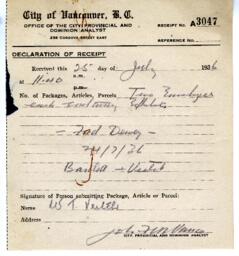 City of Vancouver, B. C.
OFFICE OF THE CITY PROVINCIAL AND
DOMINION ANALYST
236 CORDOVA STREET EAST
RECEIPT No. A3047
REFERENCE No.
DECLARATION OF RECEIPT
Received this 25 day of July 1936
at 11.00
No. of Packages, Articles, Parcels Two Envelopes
each containing
- Fred Dewey
24/7/36
Signature of Person submitting Package, Article or Parcel:
Name
Address
CITY, PROVINCIAL AND DOMINION ANALYST